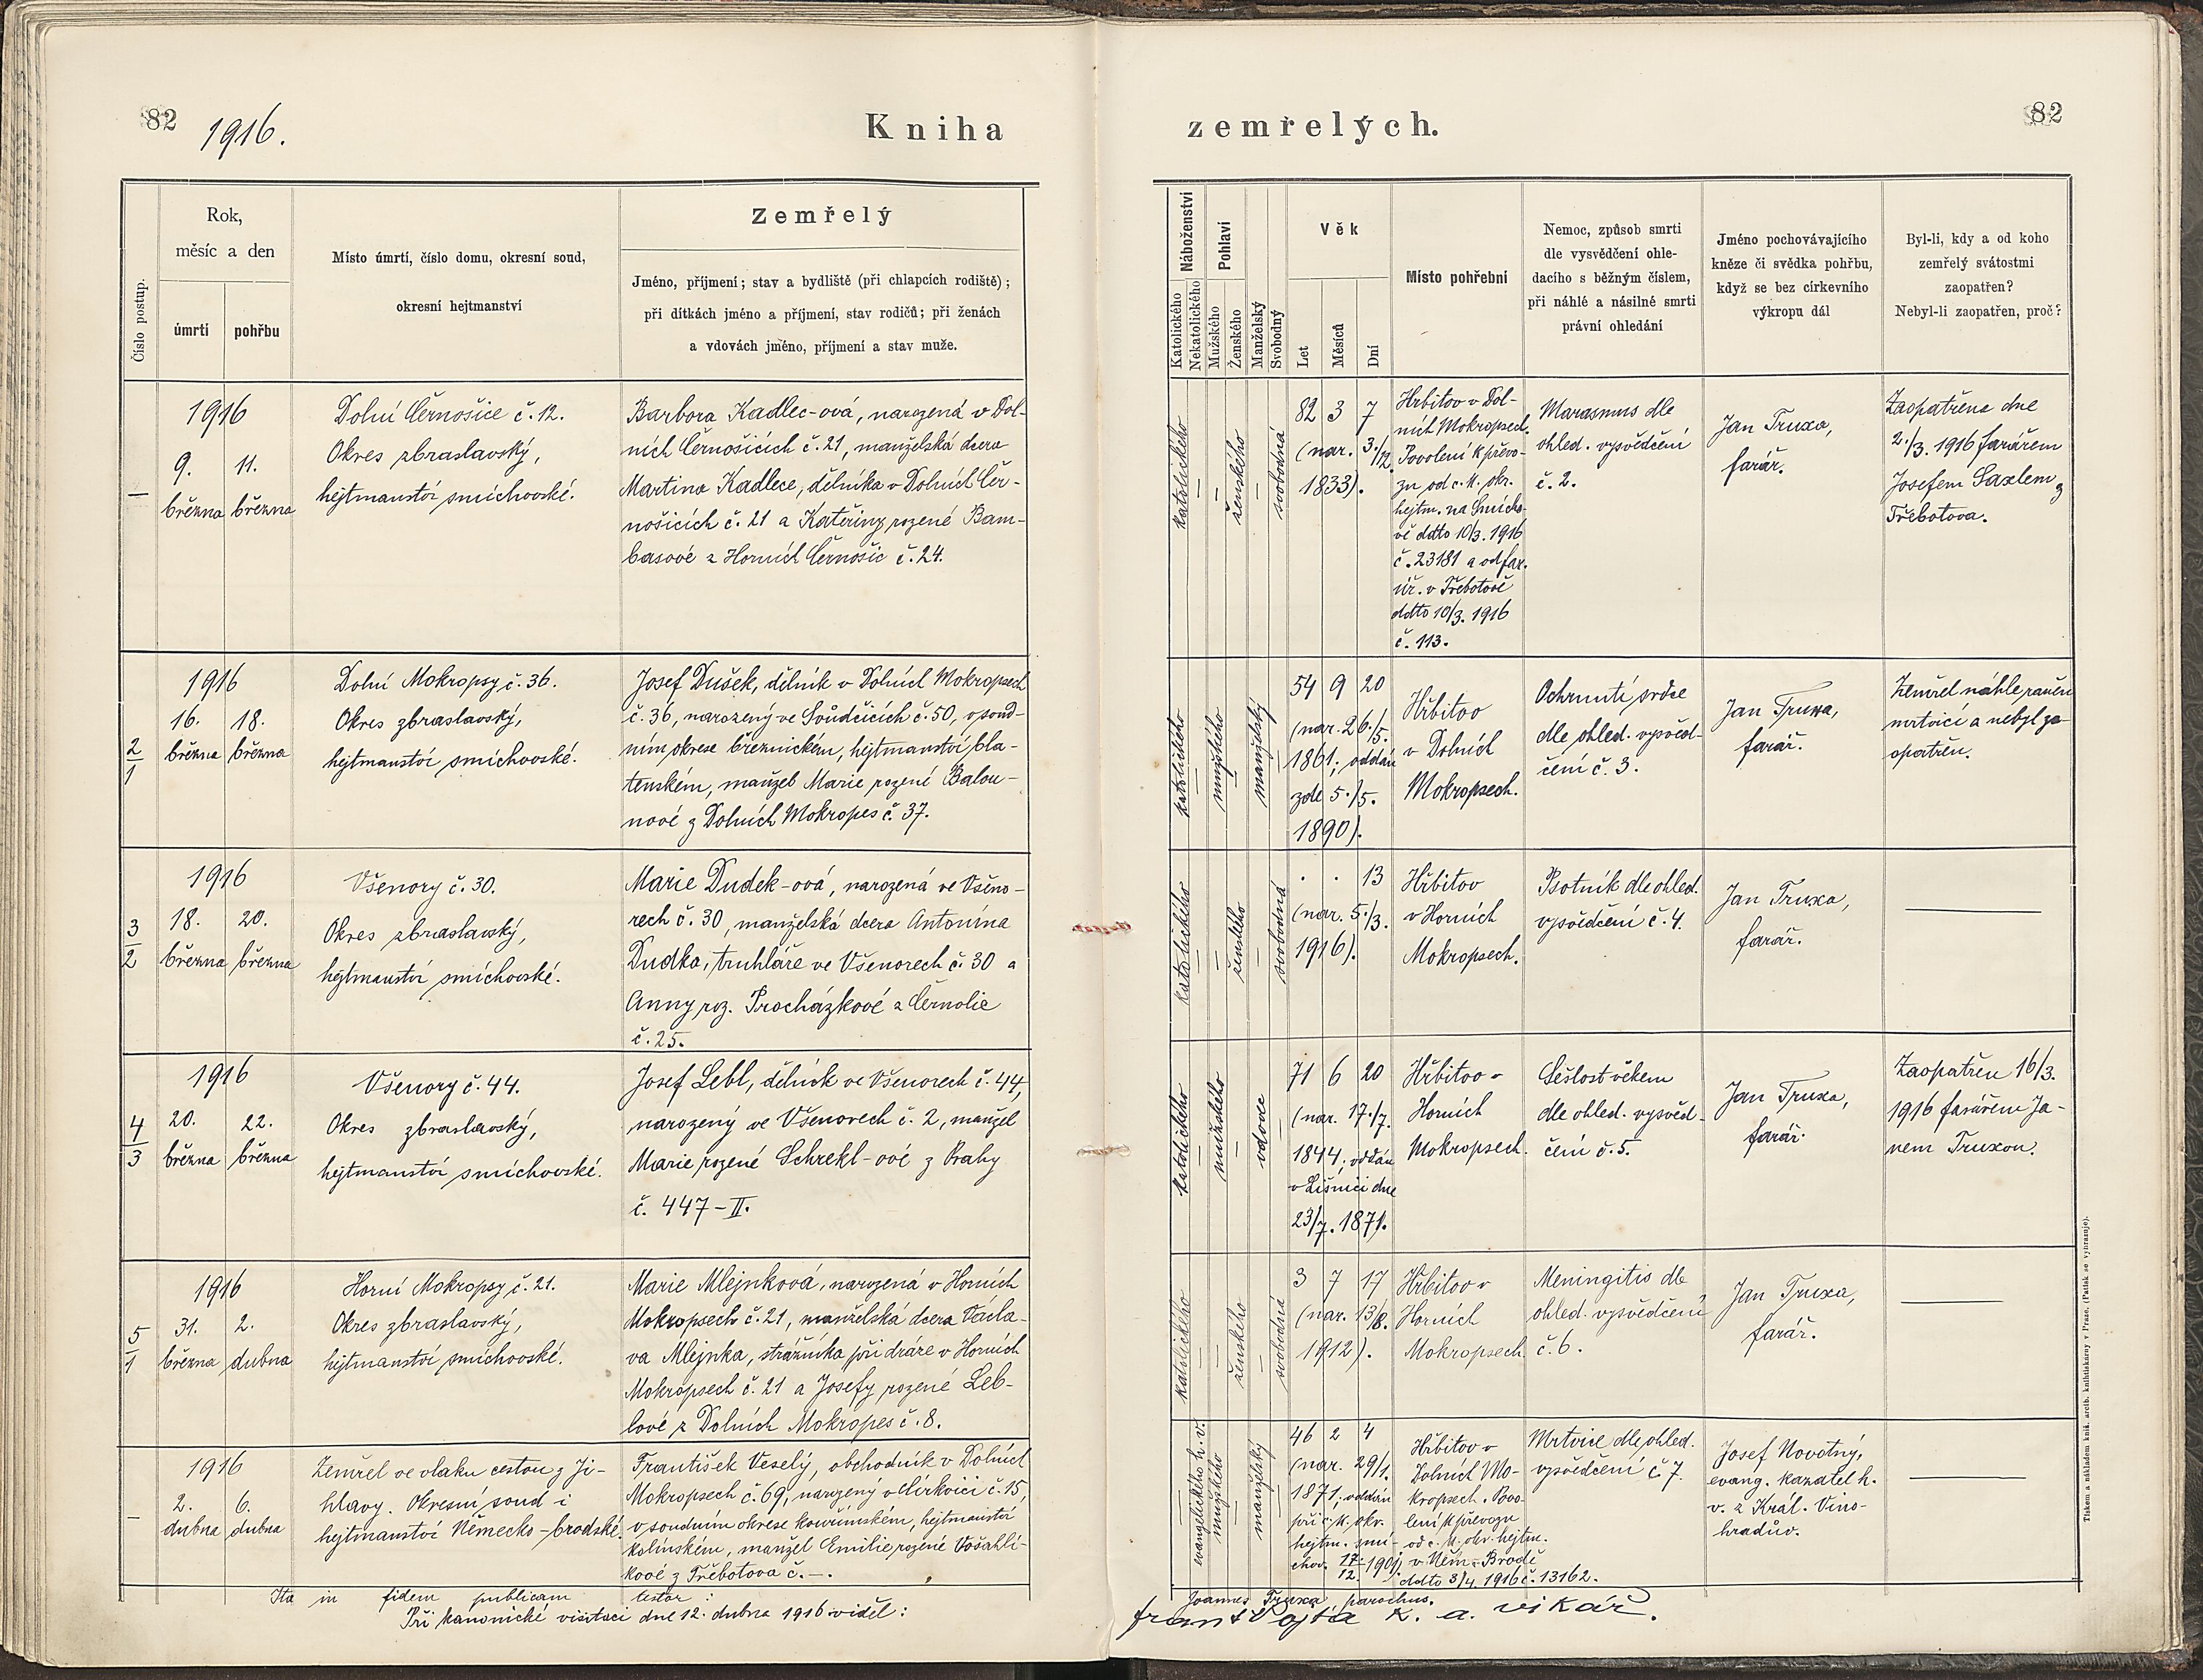 82
1916.
Kniha
zemřelých.
82
Číslo postup.
Rok,
měsíc a den
úmrtí
pohřbu
Místo úmrtí, číslo domu, okresní soud,
okresní hejtmanství
Zemřelý
Jméno, příjmení; stav a bydliště (při chlapcích rodiště);
při dítkách jméno a příjmení, stav rodičů; při ženách
a vdovách jméno, příjmení a stav muže.
Náboženství
Katolického
Nekatolického
Pohlaví
Mužského
Ženského
Manželský
Svobodný
Věk
Let
Měsíců
Dní
Místo pohřební
Nemoc, způsob smrti
dle vysvědčení ohle-
dacího s běžným číslem,
při náhlé a násilné smrti
právní ohledání
Jméno pochovávajícího
kněze či svědka pohřbu,
když se bez církevního
výkropu dál
Byl-li, kdy a od koho
zemřelý svátostmi
zaopatřen?
Nebyl-li zaopatřen, proč?
—
1916
9. 11.
března března
Dolní Černošice č. 12.
Okres zbraslavský,
hejtmanství smíchovské.
Barbora Kadlec-ová, narozená v Dol-
ních Černošicích č. 21, manželská dcera
Martina Kadlece, dělníka v Dolních Čer-
nošicích č. 21 a Kateřiny rozené Bam-
basové z Horních Černošic č. 24.
katolického
—
—
ženského
—
svobodná
82 3 7
(nar. 3./12.
1833).
Hřbitov v Dol-
ních Mokropsech.
Povolení k převo-
zu od c. k. okr.
hejtm. na Smícho-
vě ddto 10/3. 1916
č. 23181 a od far.
úř. v Třebotově
ddto 10/3. 1916
č. 113.
Marasmus dle
ohled. vysvědčení
č. 2.
Jan Truxa,
farář.
Zaopatřena dne
2./3. 1916 farářem
Josefem Saxlem z
Třebotova.
2/1
1916
16. 18.
března března
Dolní Mokropsy č. 36.
Okres zbraslavský,
hejtmanství smíchovské.
Josef Dušek, dělník v Dolních Mokropsech
č. 36, narozený ve Svůdčicích č. 50, v soud-
ním okrese březnickém, hejtmanství bla-
tenském, manžel Marie rozené Balou-
nové z Dolních Mokropes č. 37.
katolického
—
mužského
—
manželský
—
54 9 20
(nar. 26./5.
1861; oddán
zde 5./5.
1890).
Hřbitov
v Dolních
Mokropsech.
Ochrnutí srdce
dle ohled. vysvěd-
čení č. 3.
Jan Truxa,
farář.
Zemřel náhle, raněn
mrtvicí a nebyl za-
opatřen.
3/2
1916
18. 20.
března března
Všenory č. 30.
Okres zbraslavský,
hejtmanství smíchovské.
Marie Dudek-ová, narozená ve Všeno-
rech č. 30, manželská dcera Antonína
Dudka, truhláře ve Všenorech č. 30 a
Anny roz. Procházkové z Černolic
č. 25.
katolického
—
—
ženského
—
svobodná
. . 13
(nar. 5./3.
1916).
Hřbitov
v Horních
Mokropsech.
Psotník dle ohled.
vysvědčení č. 4.
Jan Truxa,
farář.
—
4/3
1916
20. 22.
března března
Všenory č. 44.
Okres zbraslavský,
hejtmanství smíchovské.
Josef Lebl, dělník ve Všenorech č. 44,
narozený ve Všenorech č. 2, manžel
Marie rozené Schrekl-ové z Prahy
č. 447-II.
katolického
—
mužského
—
vdovec
—
71 6 20
(nar. 17./7.
1844; oddán
v Líšnici dne
23/7. 1871.
Hřbitov v
Horních
Mokropsech.
Sešlost věkem
dle ohled. vysvěd-
čení č. 5.
Jan Truxa,
farář.
Zaopatřen 16/3.
1916 farářem Ja-
nem Truxou.
5/1
1916
31. 2.
března dubna
Horní Mokropsy č. 21.
Okres zbraslavský,
hejtmanství smíchovské.
Marie Mlejnková, narozená v Horních
Mokropsech č. 21, manželská dcera Václa-
va Mlejnka, strážníka při dráze v Horních
Mokropsech č. 21 a Josefy rozené Leb-
lové z Dolních Mokropes č. 8.
katolického
—
—
ženského
—
svobodná
3 7 17
(nar. 13/8.
1912).
Hřbitov v
Horních
Mokropsech
Meningitis dle
ohled. vysvědčení
č. 6.
Jan Truxa,
farář.
—
–
1916
2. 6.
dubna dubna
Zemřel ve vlaku cestou z Ji-
hlavy. Okresní soud i
hejtmanství Německo-brodské.
František Veselý, obchodník v Dolních
Mokropsech č. 69, narozený v Církvici č. 15,
v soudním okrese kouřimském, hejtmanství
kolínském, manžel Emilie rozené Vošahlí-
kové z Třebotova č. —.
—
evangelického h. v.
mužského
—
manželský
—
46 2 4
(nar. 29/1.
1871; oddán
při c. k. okr.
hejtm. smí-
chov. 17/12. 1901).
Hřbitov v
Dolních Mo-
kropsech. Povo-
lení k převozu
od c. k. okr. hejtm.
v Něm. Brodě
ddto 3/4. 1916 č. 13162.
Mrtvice dle ohled.
vysvědčení č. 7.
Josef Novotný,
evang. kazatel h.
v. z Král. Vino-
hradův.
—
Ita in fidem publicam testor:
Joannes Truxa, parochus.
Při kanonické visitaci dne 12. dubna 1916 viděl:
Frant Vojta k. a. vikář.
Tiskem a nákladem kníž. arcib. knihtiskárny v Praze. (Patisk se vyhrazuje).